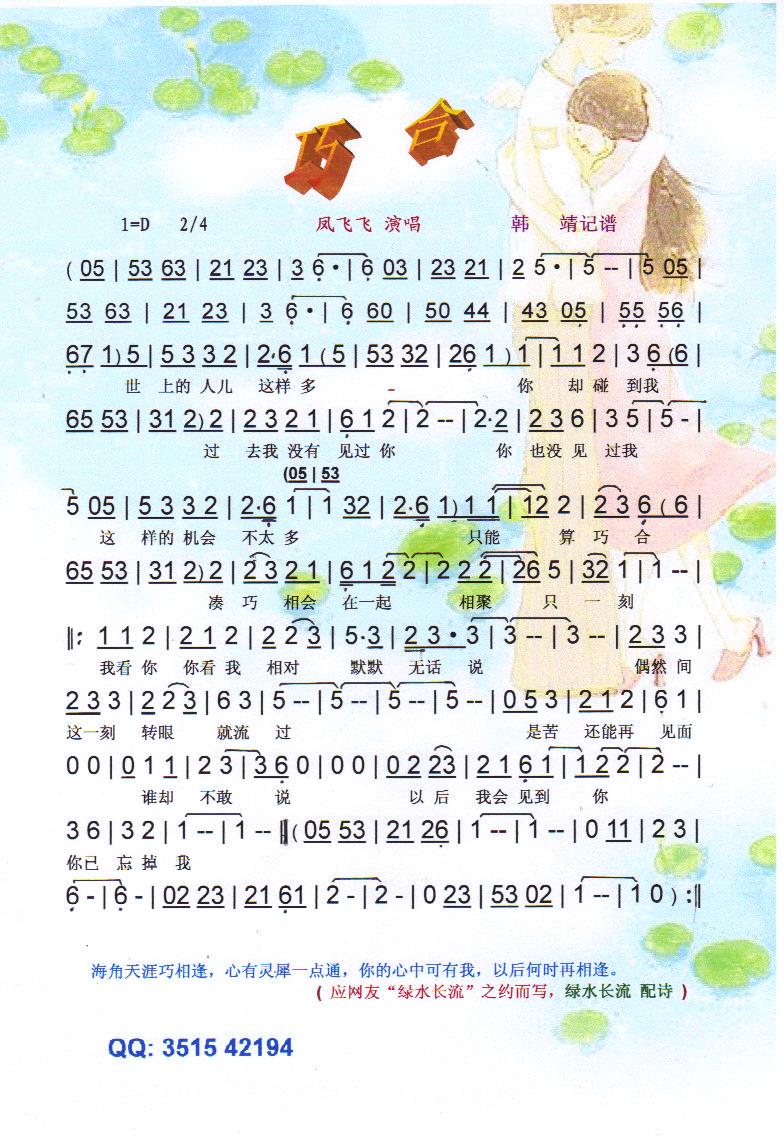 巧合
1=D 2/4 凤飞飞 演唱 韩 靖记谱
( 05 | 53 63 | 21 23 | 3 6 · | 6 03 | 23 21 | 2 5 · | 5 -- | 5 05 |
53 63 | 21 23 | 3 6 · | 6 60 | 50 44 | 43 05 | 55 56 |
67 1 ) 5 | 5 3 3 2 | 2·6 1 ( 5 | 53 32 | 26 1 ) 1 | 1 1 2 | 3 6 ( 6 |
世 上的 人儿 这样 多 你 却碰 到我
65 53 | 31 2 ) 2 | 2 3 2 1 | 6 1 2 | 2 -- | 2·2 | 2 3 6 | 3 5 | 5 - |
过 去我 没有 见过 你 你 也没 见 过我
(05 | 53
5 05 | 5 3 3 2 | 2·6 1 | 1 32 | 2·6 1 ) 1 1 | 12 2 | 2 3 6 ( 6 |
这 样的 机会 不太 多 只能 算 巧 合
65 53 | 31 2 ) 2 | 2 3 2 1 | 6 1 2 2 | 2 2 2 | 26 5 | 32 1 | 1 -- |
凑 巧 相会 在一起 相聚 只 一 刻
‖: 1 1 2 | 2 1 2 | 2 2 3 | 5·3 | 2 3 · 3 | 3 -- | 3 -- | 2 3 3 |
我看 你 你看 我 相对 默默 无话 说 偶然 间
2 3 3 | 2 2 3 | 6 3 | 5 -- | 5 -- | 5 -- | 5 -- | 0 5 3 | 2 1 2 | 6 1 |
这一刻 转眼 就流 过 是苦 还能再 见面
0 0 | 0 1 1 | 2 3 | 3 6 0 | 0 0 | 0 2 23 | 2 1 6 1 | 1 2 2 | 2 -- |
谁却 不敢 说 以 后 我会 见到 你
3 6 | 3 2 | 1 -- | 1 -- ‖ ( 05 53 | 21 26 | 1 -- | 1 -- | 0 11 | 2 3 |
你已 忘掉 我
6 - | 6 - | 02 23 | 21 61 | 2 - | 2 - | 0 23 | 53 02 | 1 -- | 1 0 ) :‖
海角天涯巧相逢，心有灵犀一点通，你的心中可有我，以后何时再相逢。
( 应网友“绿水长流”之约而写，绿水长流 配诗 )
QQ: 3515 42194